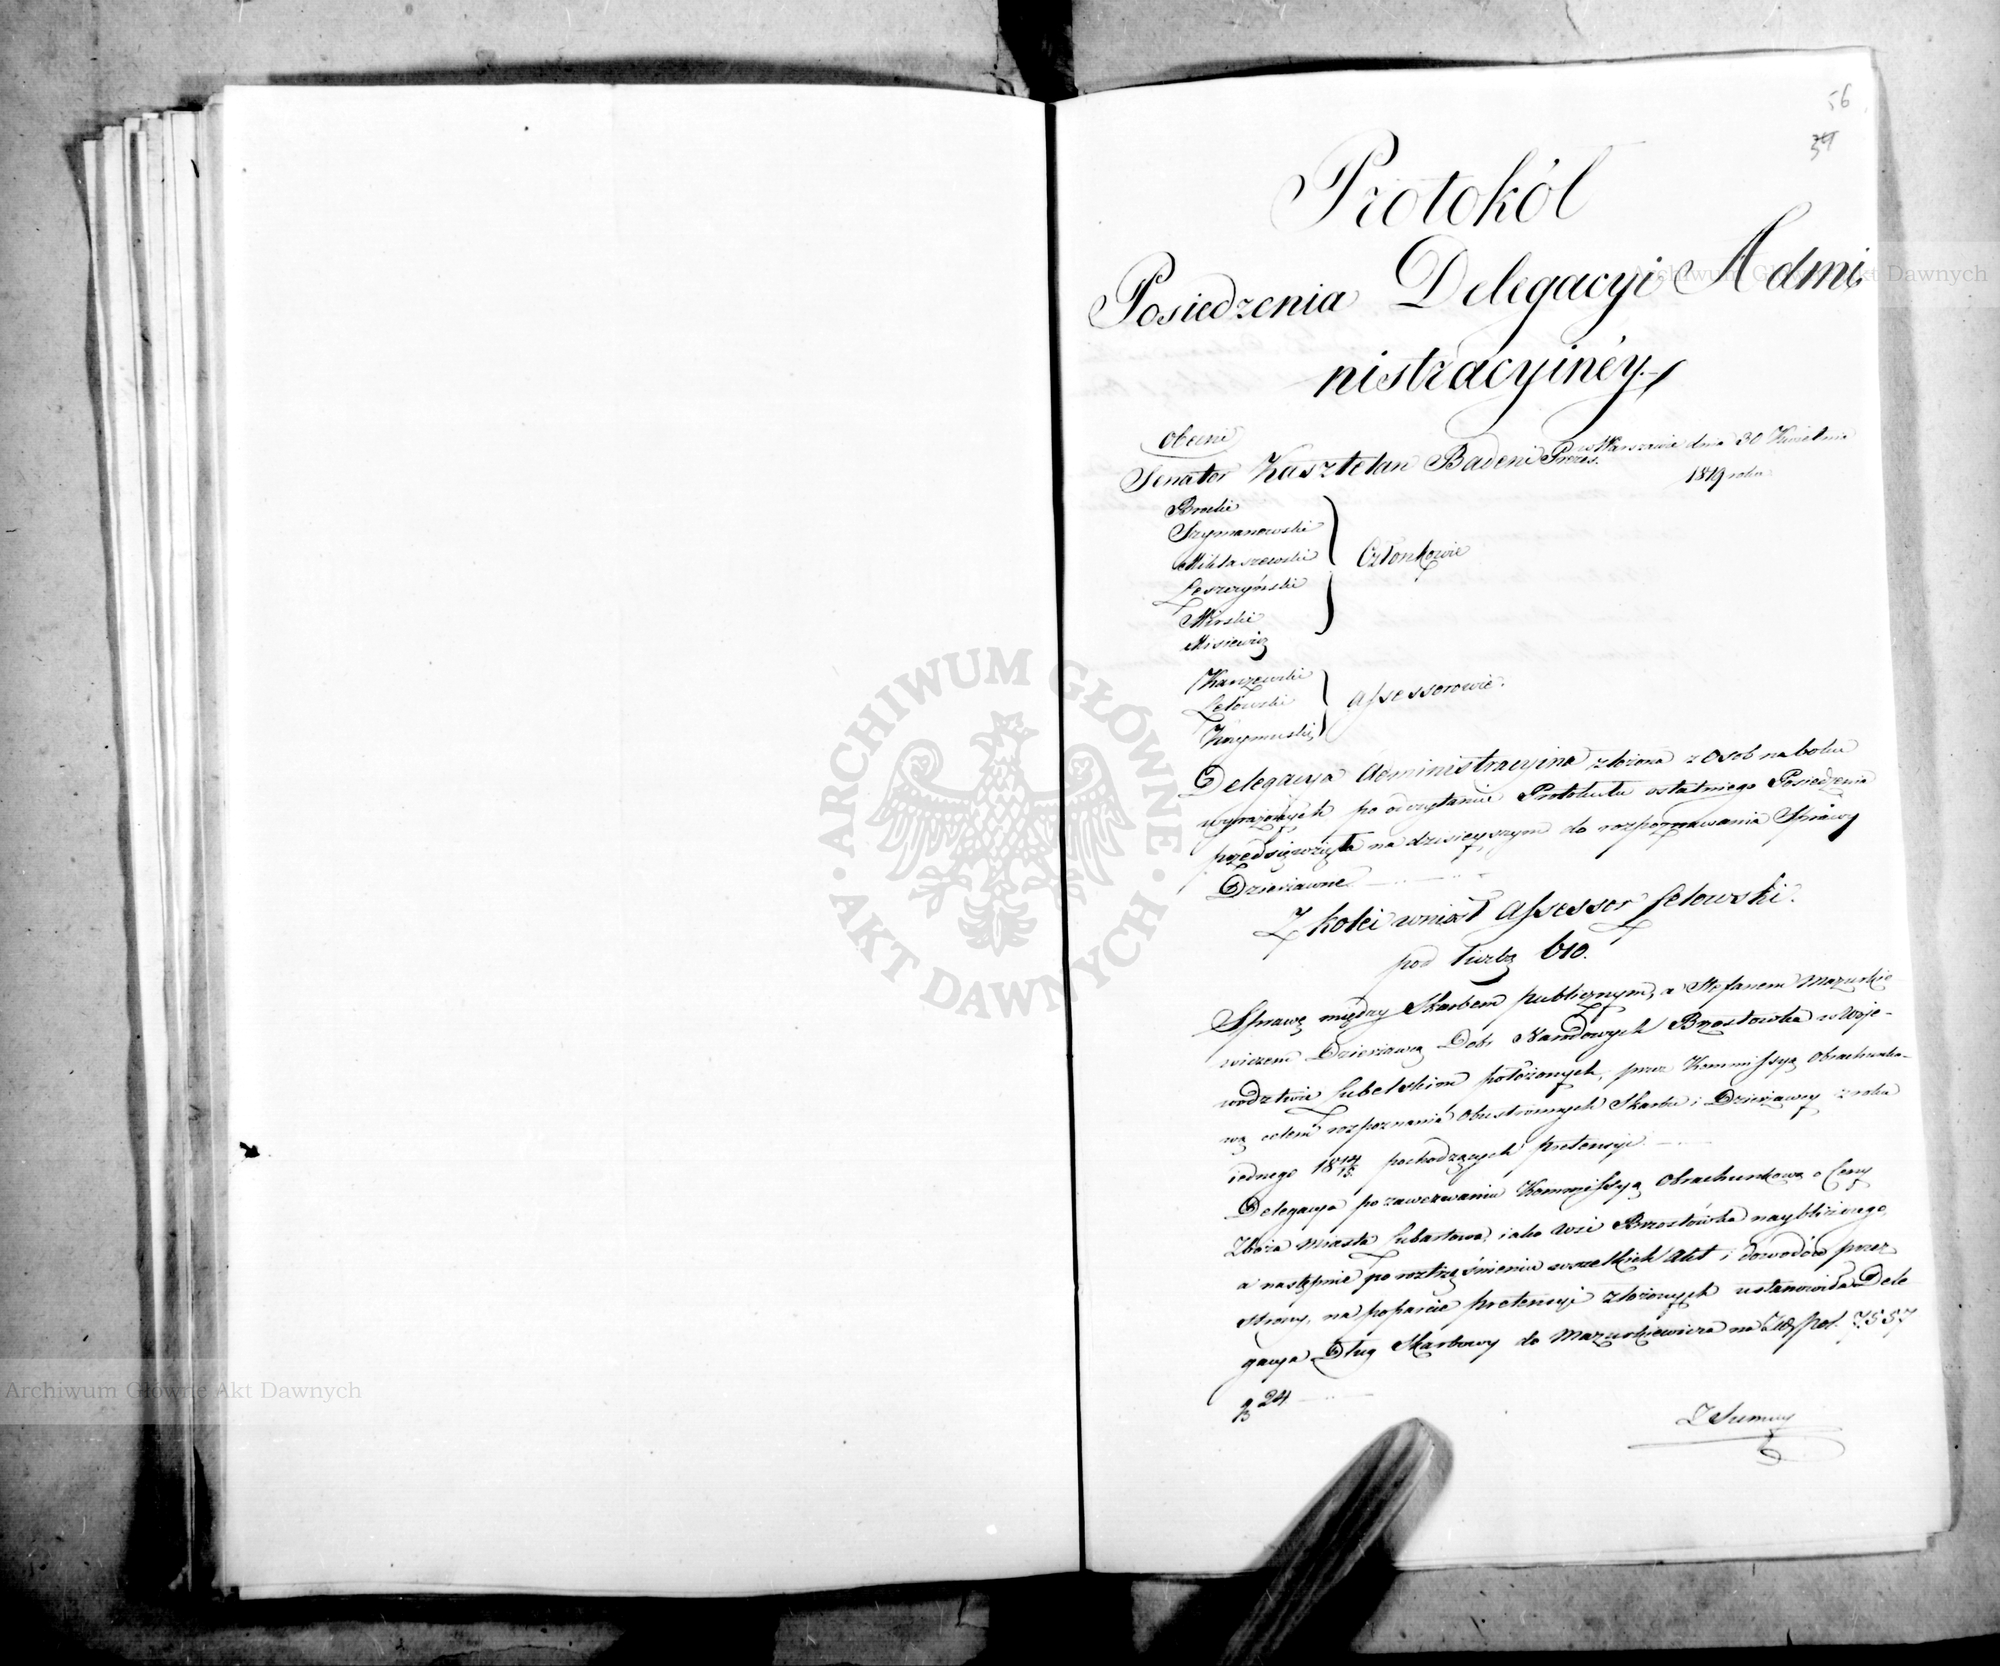 56
39
Protokół
Posiedzenia Delegacyi Admi
nistracyinéy
obecni
w Warszawie dnia 30 Kwietnia
Senator Kasztelan Badeni Prezes.
1819 roku
Brocki
Szymanowski
Mikłaszewski
Leszczyński
Mirski
Misiewicz
Członkowie
Karczewski
Łętowski
Assessorowie.
Delegacya Administracyina złożona z Osób na boku
wyrażonych po odczytaniu Protokułu ostatniego Posiedzenia
przedsięwzięła na dzisieyszym do rozpoznawania Sprawy
Dzierżawne
Z kolei wniósł Assessor Łetowski.
pod liczbą 610.
Sprawę między Skarbem publicznym, a Stefanem Mazurkie
wiczem Dzierżawcą Dobr Narodowych Brzostówka w Woje-
wodztwie Lubelskim położonych, przez Kommissyą Obrachunko-
wą celem rozpoznania obustronnych Skarbu i Dzierżawcy z roku
iednego 1814/15 pochodzących pretensyi.
Delegacya po zawezwaniu Kommissyą Obrachunkową o Ceny
Zboża Miasta Lubartowa, iako Wsi Brzostówka naybliższego,
a następnie po roztrząśnieniu wszelkich Akt i dowodów przez
strony, na poparcie pretensyi złożonych ustanowiła Dele
gacya Dług Skarbowy do Mazurkiewicza na Złł pol. 7557
gr 24
Z Summy
Archiwum Główne Akt Dawnych
Archiwum Główne Akt Dawnych
ARCHIWUM GŁÓWNE · AKT DAWNYCH ·